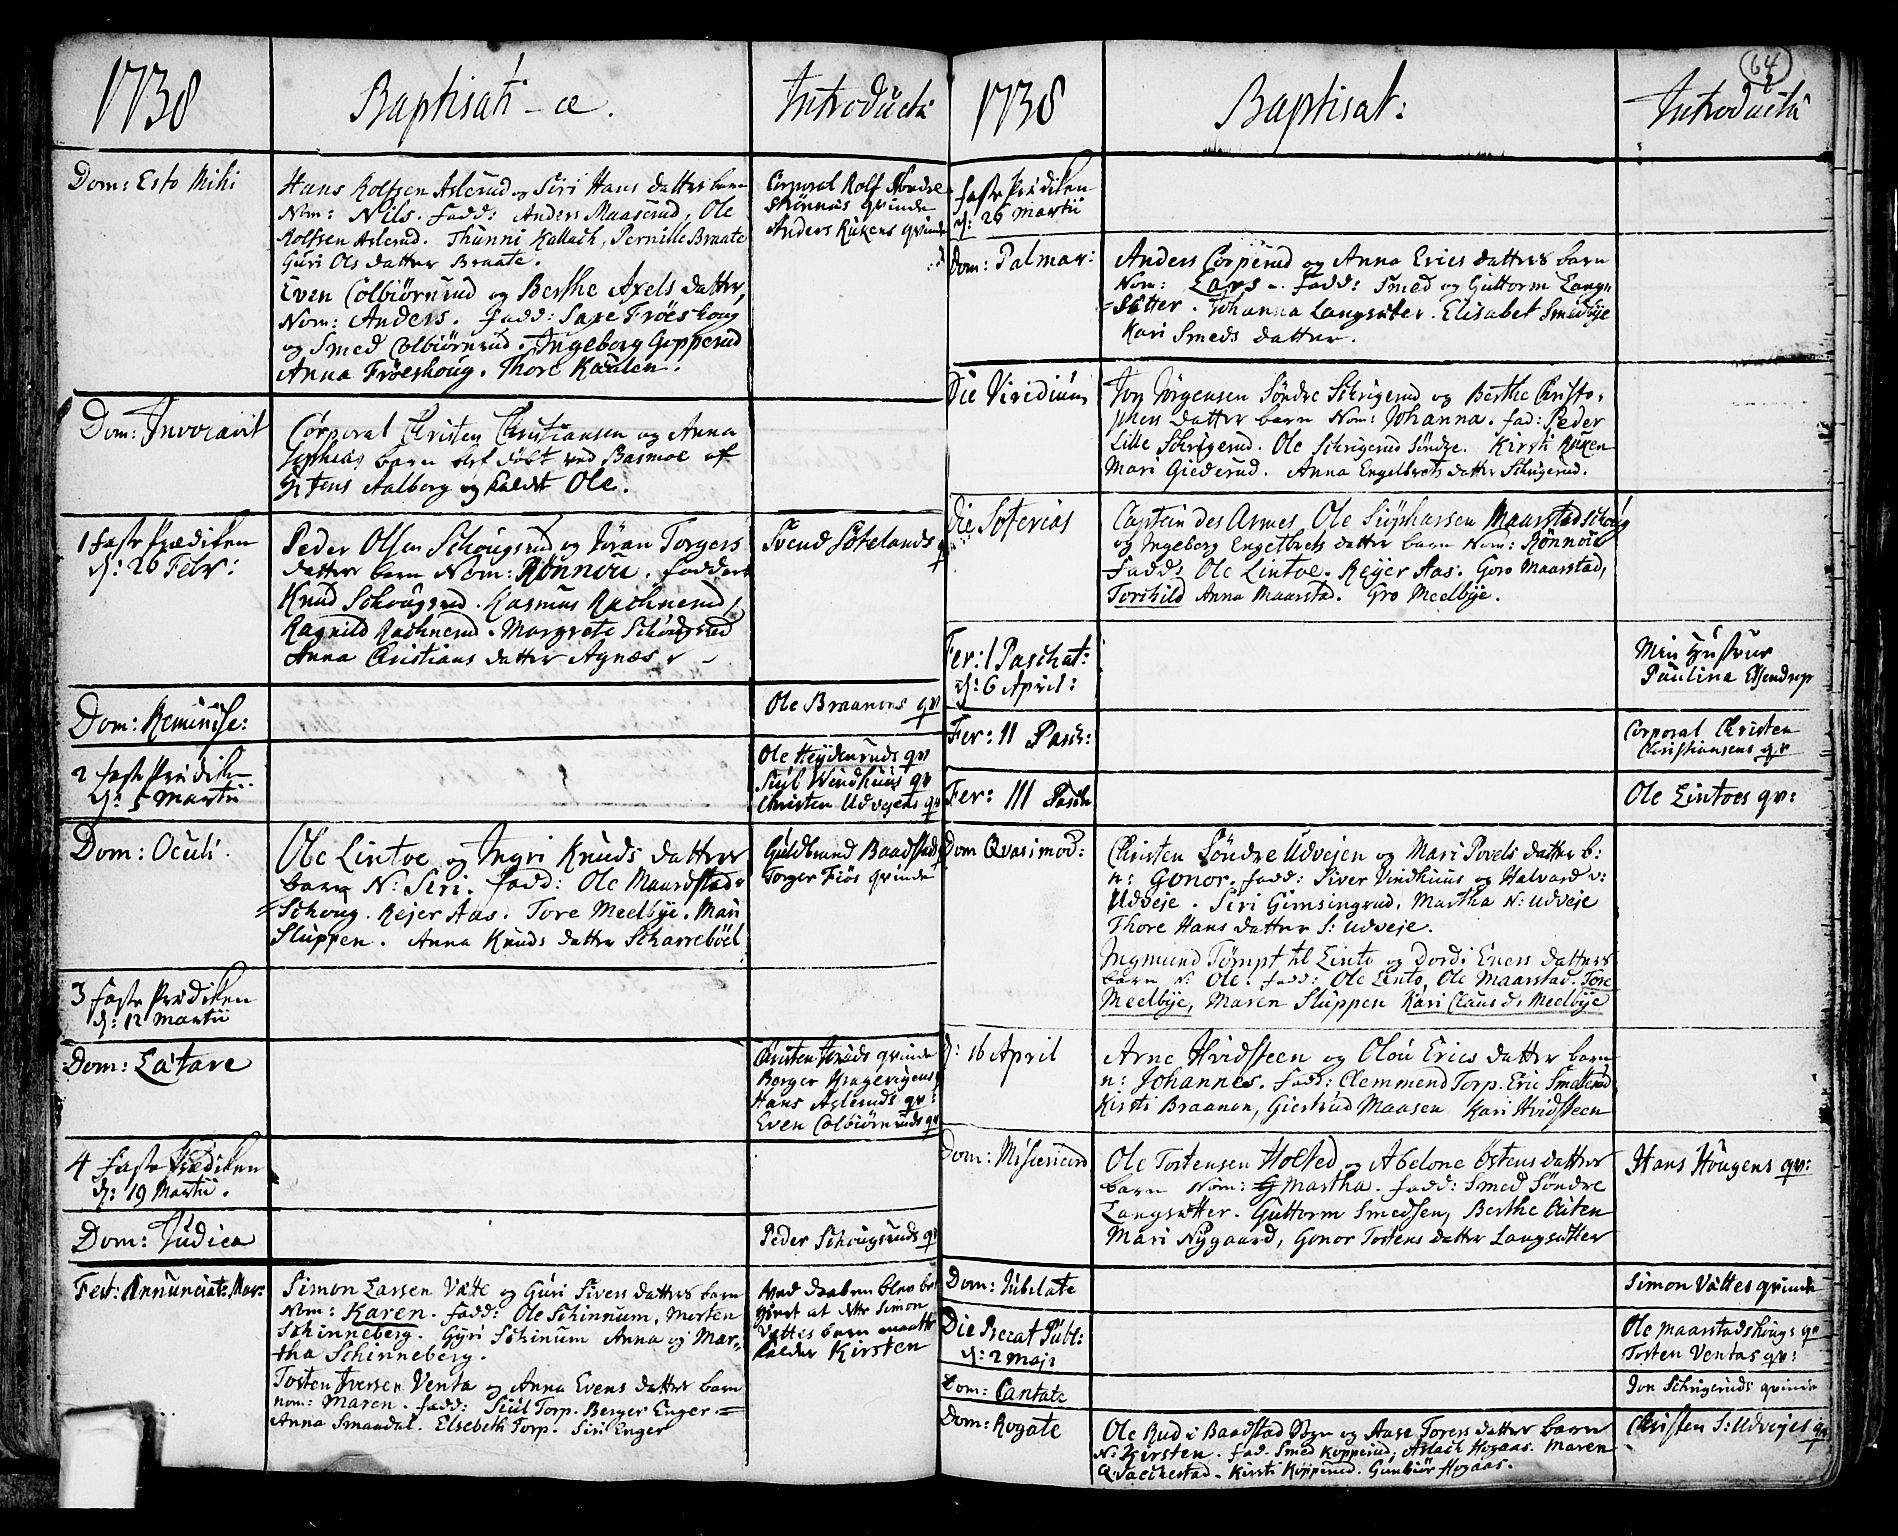 1738
Baptisati-æ.
Introducti
Dom: Esto Mihi
Hans Rolfsen Aslerud og Siri Hans datters barn
Nom: Nils. fadd: Anders Maaserud, Ole
Rolfsen Aslerud. Thurini Kallach, Pernille Braate
Guri Ols datter Braate.
Corporal Rolf Nordre
Skinnes qvinde
Anders Rukens qvinde
Even Colbiørnrud og Berthe Axels datter,
Nom: Anders. fadd: Saxe Frøeshoug
og Smed Colbiørnrud. Ingeborg Gopperud
Anna Frøeshoug. Thore Kaalen.
Dom: Invocavit
Corporal Christen Christiansen og Anna
Sophias barn blef døbt ved Basmoe af
Hr Jens Aalborg og kaldet Ole.
1 faste Prædiken
d: 26 Febr:
Peder Olsen Schougsrud og Jøran Torgers
datters barn Nom: Rønnou. fadder:
Knud Schougsrud. Rasmus Rachnerud,
Ragnild Rachnerud. Margrete Schougsrud
Anna Christians datter Agnæs
Svend Søtelands q
Dom: Reminisce:
Ole Braanens qv
2 faste Prædik
d: 5 Martii
Ole Heydenruds qv
Siul Windhuus qv
Christen Udvejens qv
Dom: Oculi.
Ole Lintoe og Ingri Knuds datters
barn N: Siri. fadd: Ole Maardstad=
=Schoug. Rejer Aas. Tore Meelbye. Mari
Sluppen. Anna Knuds datter Scharrebøel
Guldbrand Baadstads
Torger Fiøs qvinde
3 faste Prædiken
d: 12 Martii
Dom: Lætare
Christen Kruds qvinde
Berger Kragerigens
Hans Asleruds qv:
Even Colbiørnruds qv
4 faste Prædiken
d: 19 Martii.
Dom: Judica
Peder Schougsruds qv
Fest: Annunciat: Mar:
Simon Larsen Vætte og Guri Sivers datters barn
Nom: Karen. fadd: Ole Schinnum, Morten
Schinneberg. Gyri Schinum Anna og Mar=
tha Schinneberg.
Ved daaben blev be
giøret at dette Simon
Vættes barn maatte
kaldes Kirsten
Tosten Iversen Venta og Anna Evens datters barn
nom: Maren. fadd: Siul Torp. Berger Enger.=
Anna Smaadal. Elsebeth Torp. Siri Enger
64
1738
Baptisat:
Introducti
faste Prædiken
d: 26 Martii
Dom: Palmar:
Anders Corperud og Anna Erics datters barn
Nom: Lars. fadd: Smed og Guttorm Lang=
=sætter. Johanna Langsæter. Elisabet Smedbye
Kari Smeds datter.
Die Viridium
Jon Jørgensen Søndre Schrigerud og Berthe Christo=
phers datter barn Nom: Johanna. fad: Peder
Lille Schrigerud. Ole Schrigerud Søndre. Kirsti Ruken
Mari Giederud. Anna Engelbrets datter Schrigerud.
Die Soterias
Captein des Armes Ole Siuphersen Maarstadschoug
og Ingeborg Engelbrets datter barn Nom: Rønnou
Fadd: Ole Lintoe. Rejer Aas. Goro Maarstad,
Torchild Anna Maarstad. Gro Meelbye.
Fer: 1 Paschat:
d: 6 April:
Min Hustrue
Paulina Elsendrup
Fer: II Pasch:
Corporal Christen
Christiansens qv
Fer: III Pasch
Ole Lintoes qv:
Dom Qvasimod:
Christen Søndre Udvejen og Mari Povels datter b:
n: Gonor. fadd: Siver Vindhuus og Halvard v:
Udveje. Siri Gimsingrud. Martha N: Udveje
Thore Hans datter S: Udveje.
Ingmund Tømpt til Linto og Dordi Eners datters
barn N: Ole. fadd: Ole Linto, Ole Maarstad. Tore
Meelbye, Maren Sluppen Kari Claus d: Meelbye
d: 16 April
Arne Hvidsteen og Olou Erics datter barn
n: Johannes. fadd: Clemmend Torp. Eric Smellerud
Kirsti Braanen, Giertrud Maasen Kari Hvidsteen
Dom: Misericord
Ole Tostensen Holsted og Abelone Østens datter
barn Nom: Martha. fadd: Smed Søndre
Langsætter. Guttorm Smedsen, Berthe Ruten
Mari Nygaard, Gonor Tostens datter Langsætter
Hans Hougens qv:
Dom: Jubilate
Simon Vættes qvinde
Die Precat Publ:
d: 2 Maji
Ole Maarstadshougs qv
Tosten Ventas qv:
Dom: Cantate
Jon Schrigeruds qvinde
Dom: Rogate
Ole Rud i Baadstad Sogn og Aase Torers datter barn
N: Kirsten. fad. Smed Kopperud, Aslach Hogaas. Maren
Qvacchestad. Kirsti Kopperud. Gunbiør Hogaas.
Christen S: Udvejes qv